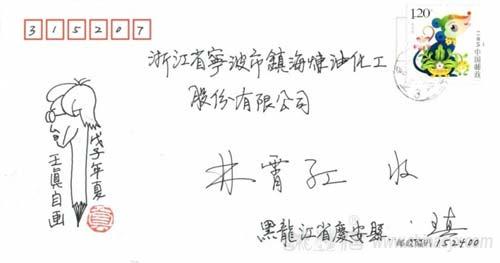 315207
120
中国邮政
浙江省寧波市鎮海煉油化工
股份有限公司
林霄紅 收
戊子年夏
王真自画
黑龍江省慶安縣
邮政编码152400